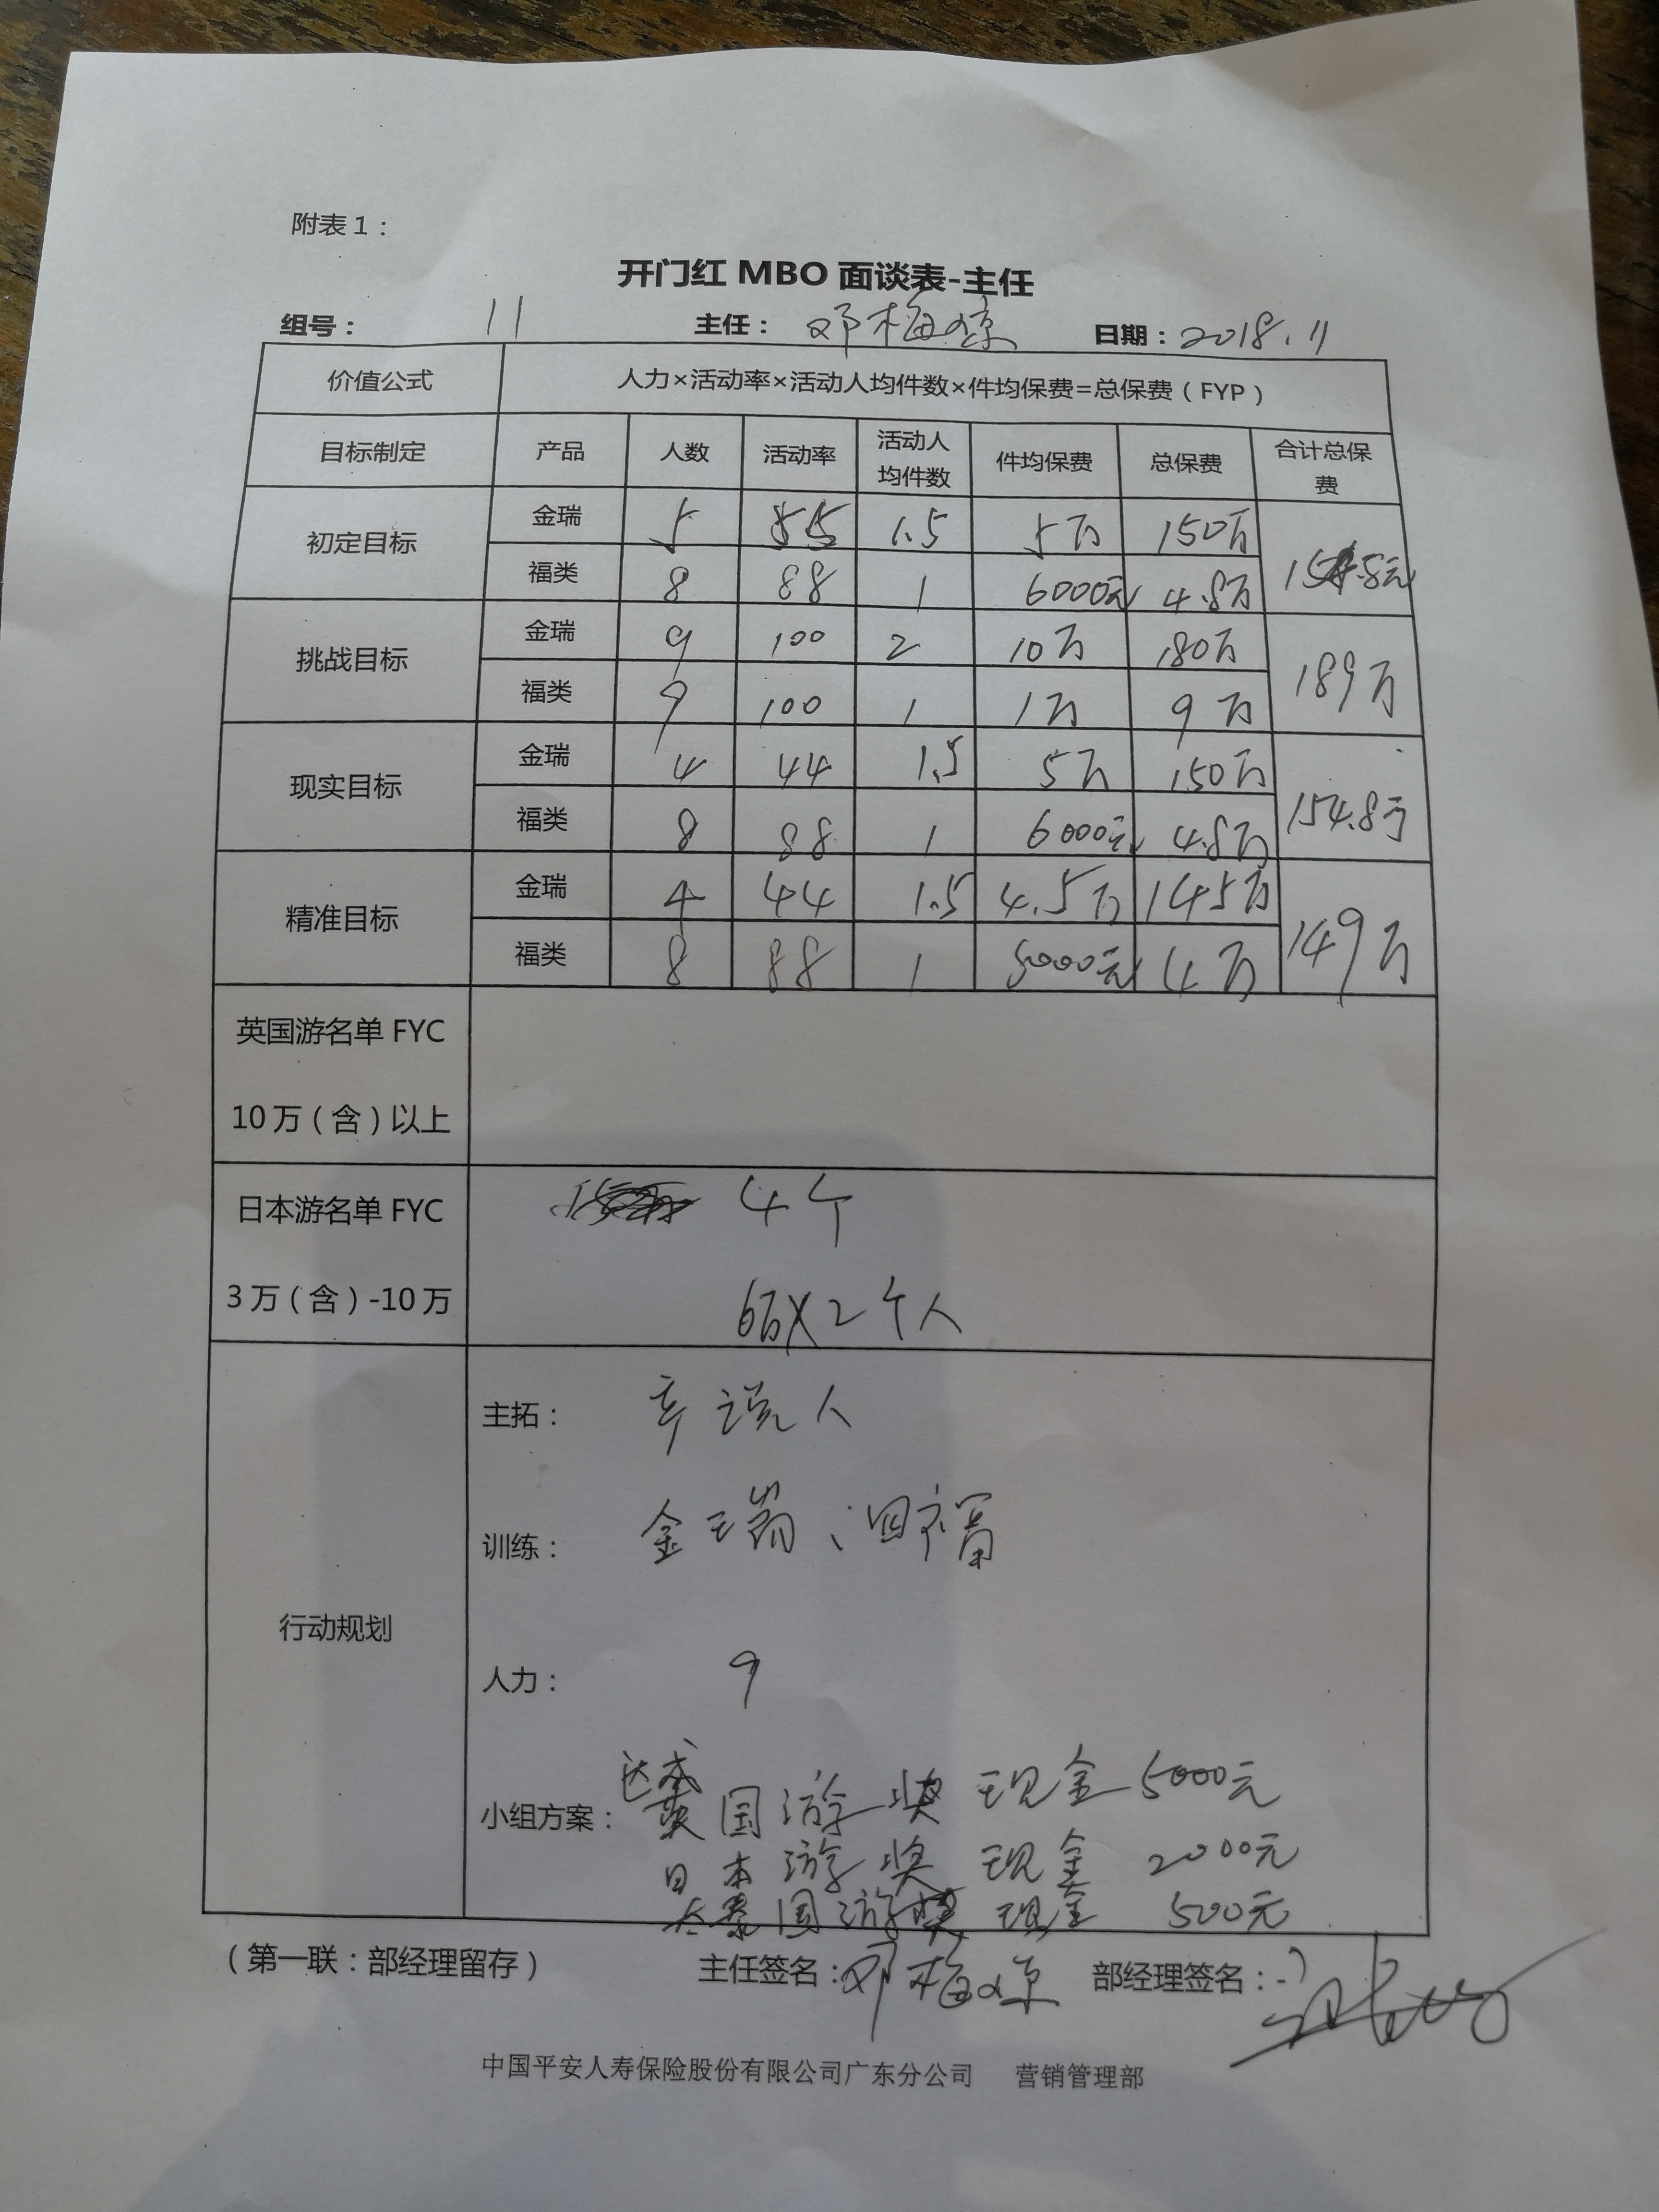 附表1：
开门红 MBO 面谈表-主任
组号： 11 主任： 邓梅琼 日期：2018.11
价值公式 人力×活动率×活动人均件数×件均保费=总保费（FYP）
目标制定 产品 人数 活动率 活动人均件数 件均保费 总保费 合计总保费
初定目标 金瑞 5 55 1.5 5万 150万
福类 8 88 1 6000元 4.8万
挑战目标 金瑞 9 100 2 10万 180万 189万
福类 9 100 1 1万 9万
现实目标 金瑞 4 44 1.5 5万 150万 154.8万
福类 8 88 1 6000元 4.8万
精准目标 金瑞 4 44 1.5 4.5万 145万 149万
福类 8 88 1 5000元 4万
英国游名单 FYC
10万（含）以上
日本游名单 FYC 4个
3万（含）-10万 6万×2个人
行动规划
主拓： 说人
训练： 金瑞、福
人力： 9
小组方案： 达成英国游奖 现金5000元
日本游奖 现金 2000元
泰国游奖 现金 500元
（第一联：部经理留存） 主任签名：邓梅琼 部经理签名：
中国平安人寿保险股份有限公司广东分公司 营销管理部